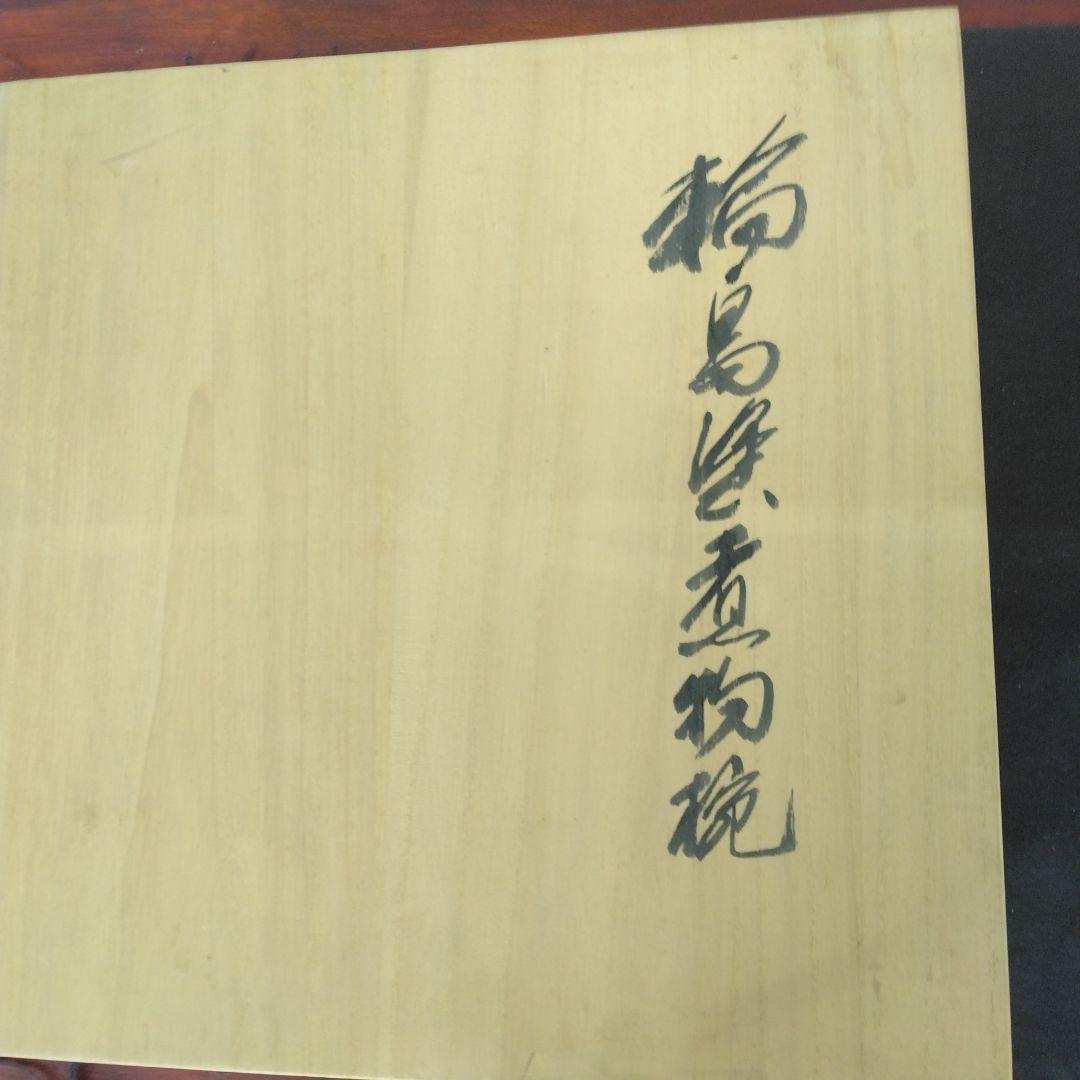 輪島塗煮物椀